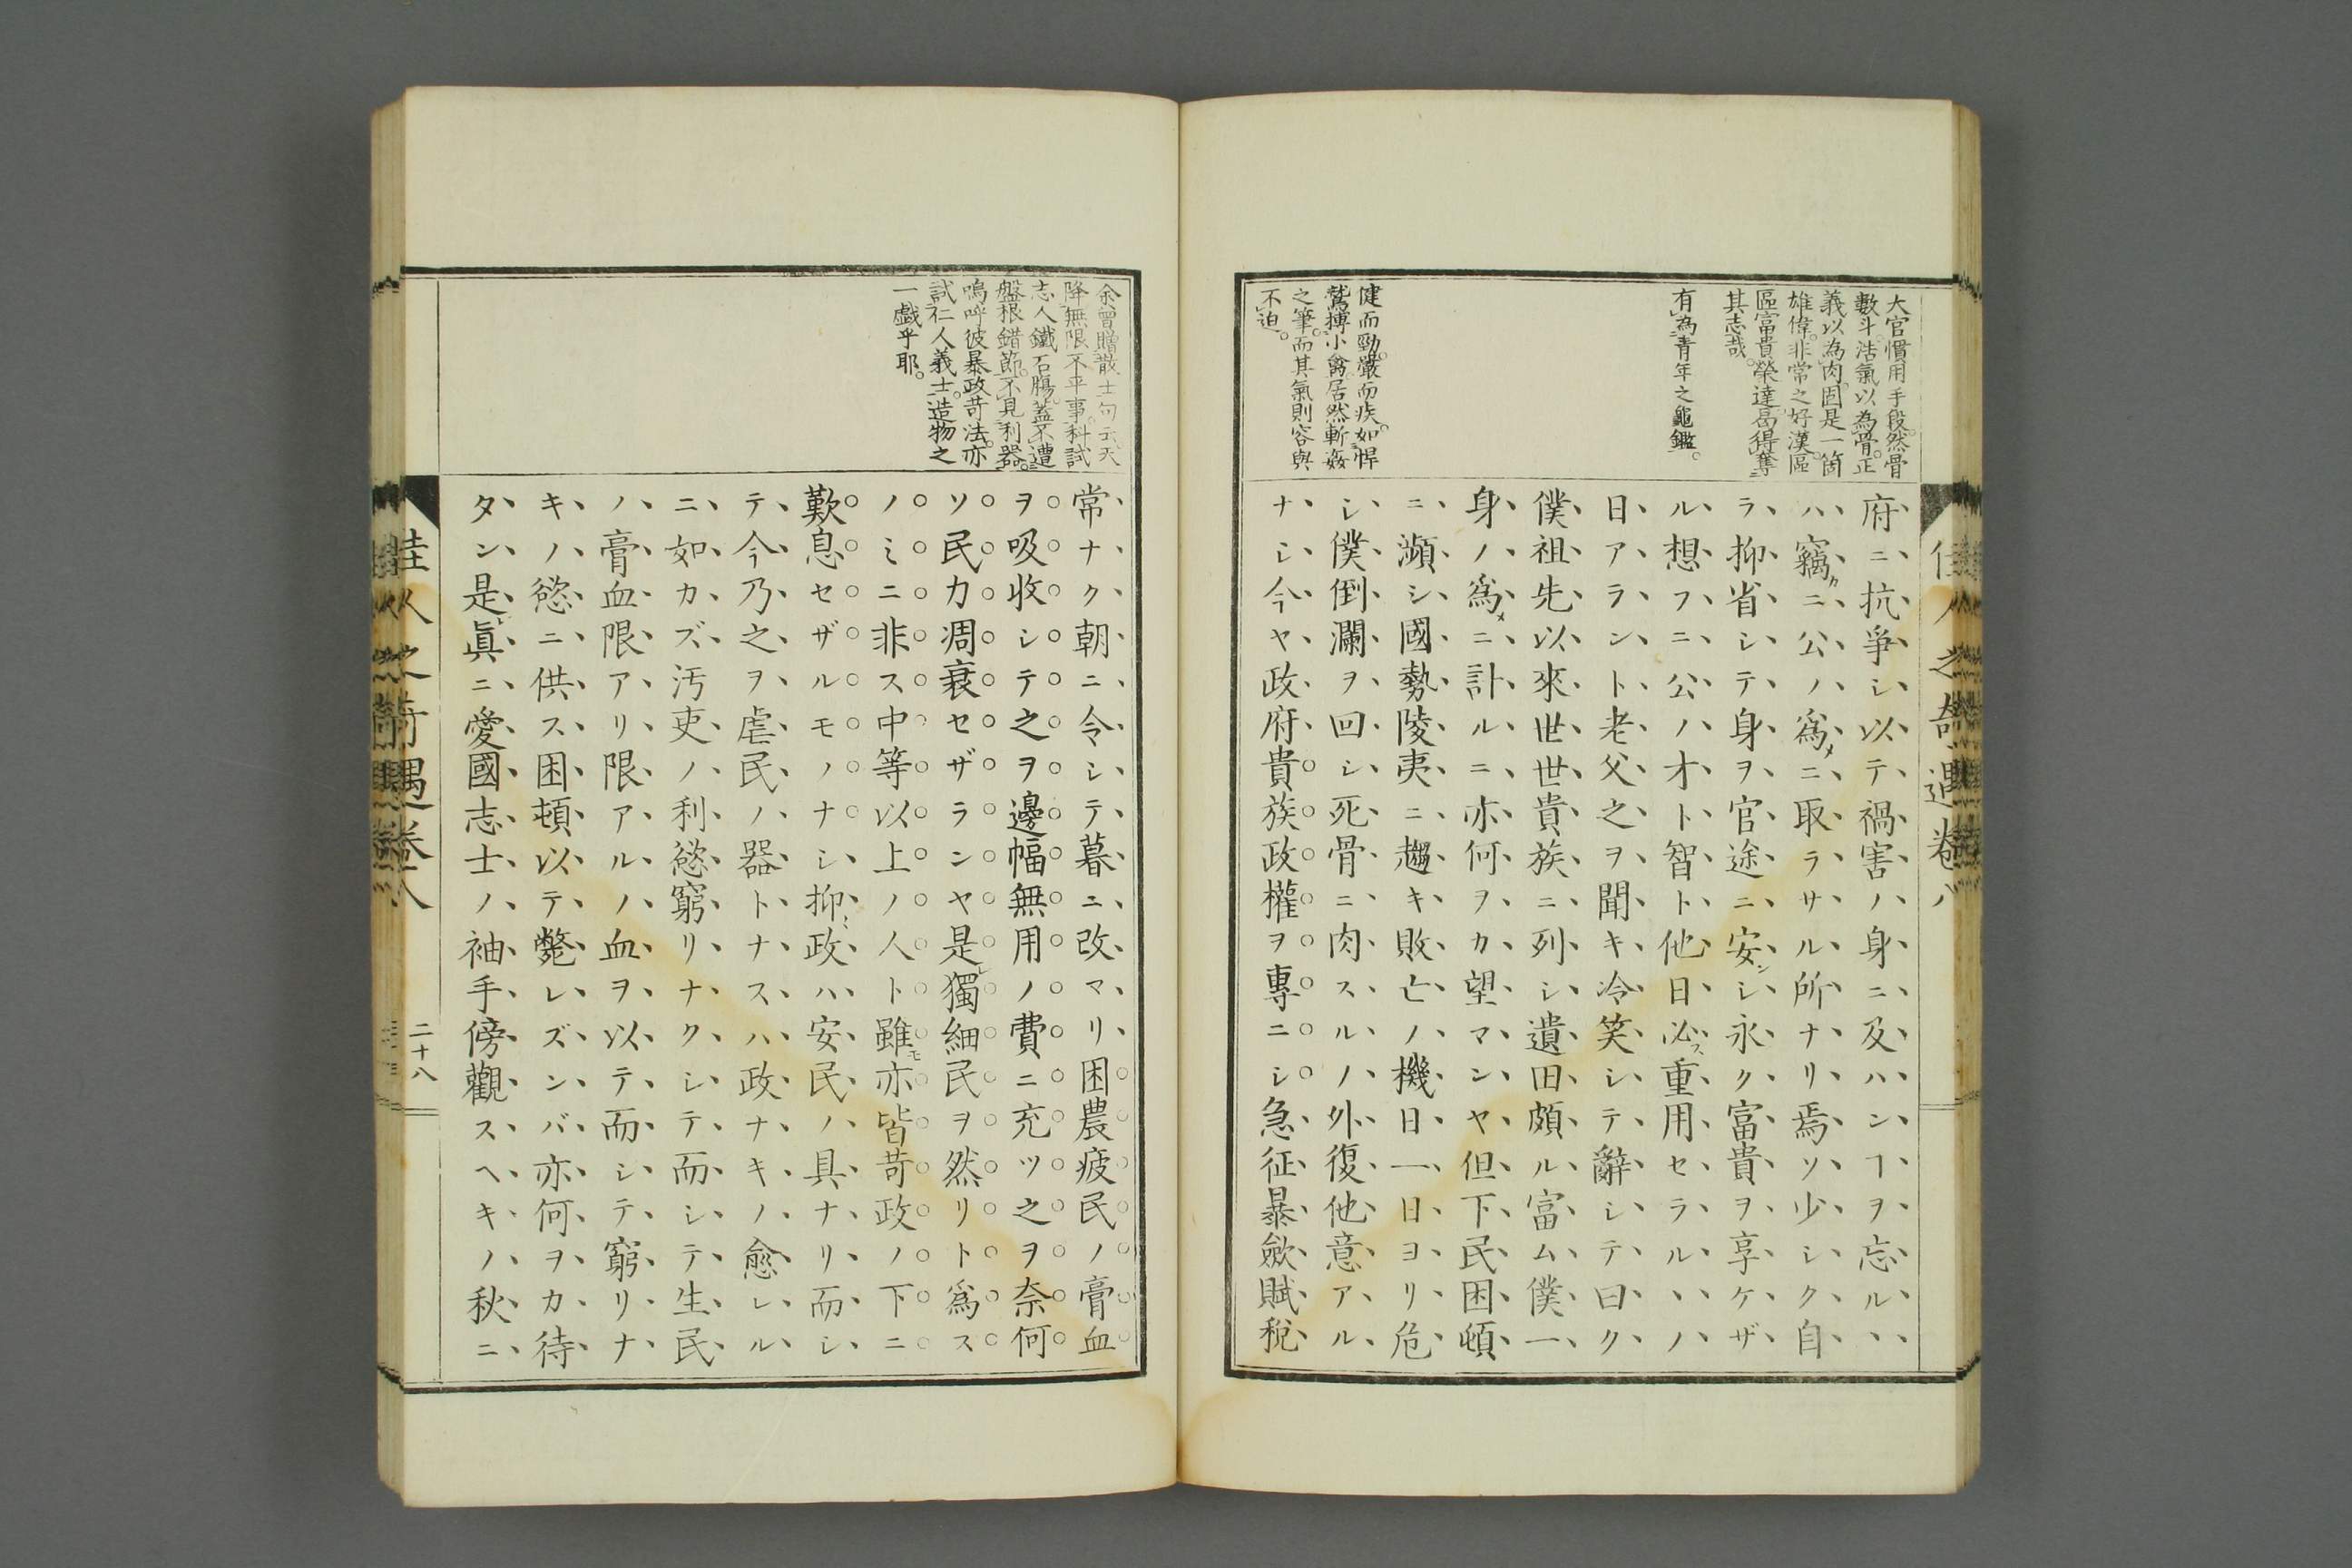 佳人之奇遇卷八
大官慣用手段。然骨
數斗。浩氣以為骨。正
義以為肉。固是一箇
雄偉。非常之好漢。區
區富貴榮達。曷得奪
其志哉。
有為青年之龜鑑。
健而勁。嚴而疾。如悍
鷲搏小禽。居然斬姦
之筆。而其氣則容與
不迫。
府ニ抗爭シ以テ禍害ノ身ニ及ハンヿヲ忘ルヽ
ハ竊カニ公ノ爲メニ取ラサル所ナリ焉ソ少シク自
ラ抑省シテ身ヲ官途ニ安シシ永ク富貴ヲ享ケザ
ル想フニ公ノ才ト智ト他日必ス重用セラルヽノ
日アラント老父之ヲ聞キ冷笑シテ辭シテ曰ク
僕祖先以來世世貴族ニ列シ遺田頗ル富ム僕一
身ノ爲メニ計ルニ亦何ヲカ望マンヤ但下民困頓
ニ瀕シ國勢陵夷ニ趨キ敗亡ノ機日一日ヨリ危
シ僕倒瀾ヲ回シ死骨ニ肉スルノ外復他意アル
ナシ今ヤ政府貴族政權ヲ專ニシ急征暴斂賦稅
余曾贈散士句云。天
降無限不平事。科試
志人鐵石腸。蓋不遭
盤根錯節。不見利器。
嗚呼彼暴政苛法。亦
試仁人義士。造物之
一戯乎耶。
常ナク朝ニ令シテ暮ニ改マリ困農疲民ノ膏血
ヲ吸收シテ之ヲ邊幅無用ノ費ニ充ツ之ヲ奈何
ソ民力凋衰セザランヤ是レ獨細民ヲ然リト爲ス
ノミニ非ス中等以上ノ人ト雖モ亦皆苛政ノ下ニ
歎息セザルモノナシ抑〻政ハ安民ノ具ナリ而シ
テ今乃之ヲ虐民ノ器トナスハ政ナキノ愈レル
ニ如カズ汚吏ノ利慾窮リナクシテ而シテ生民
ノ膏血限アリ限アルノ血ヲ以テ而シテ窮リナ
キノ慾ニ供ス困頓以テ斃レズンバ亦何ヲカ待
タン是レ眞ニ愛國志士ノ袖手傍觀スヘキノ秋ニ
佳人之奇遇卷八
二十八